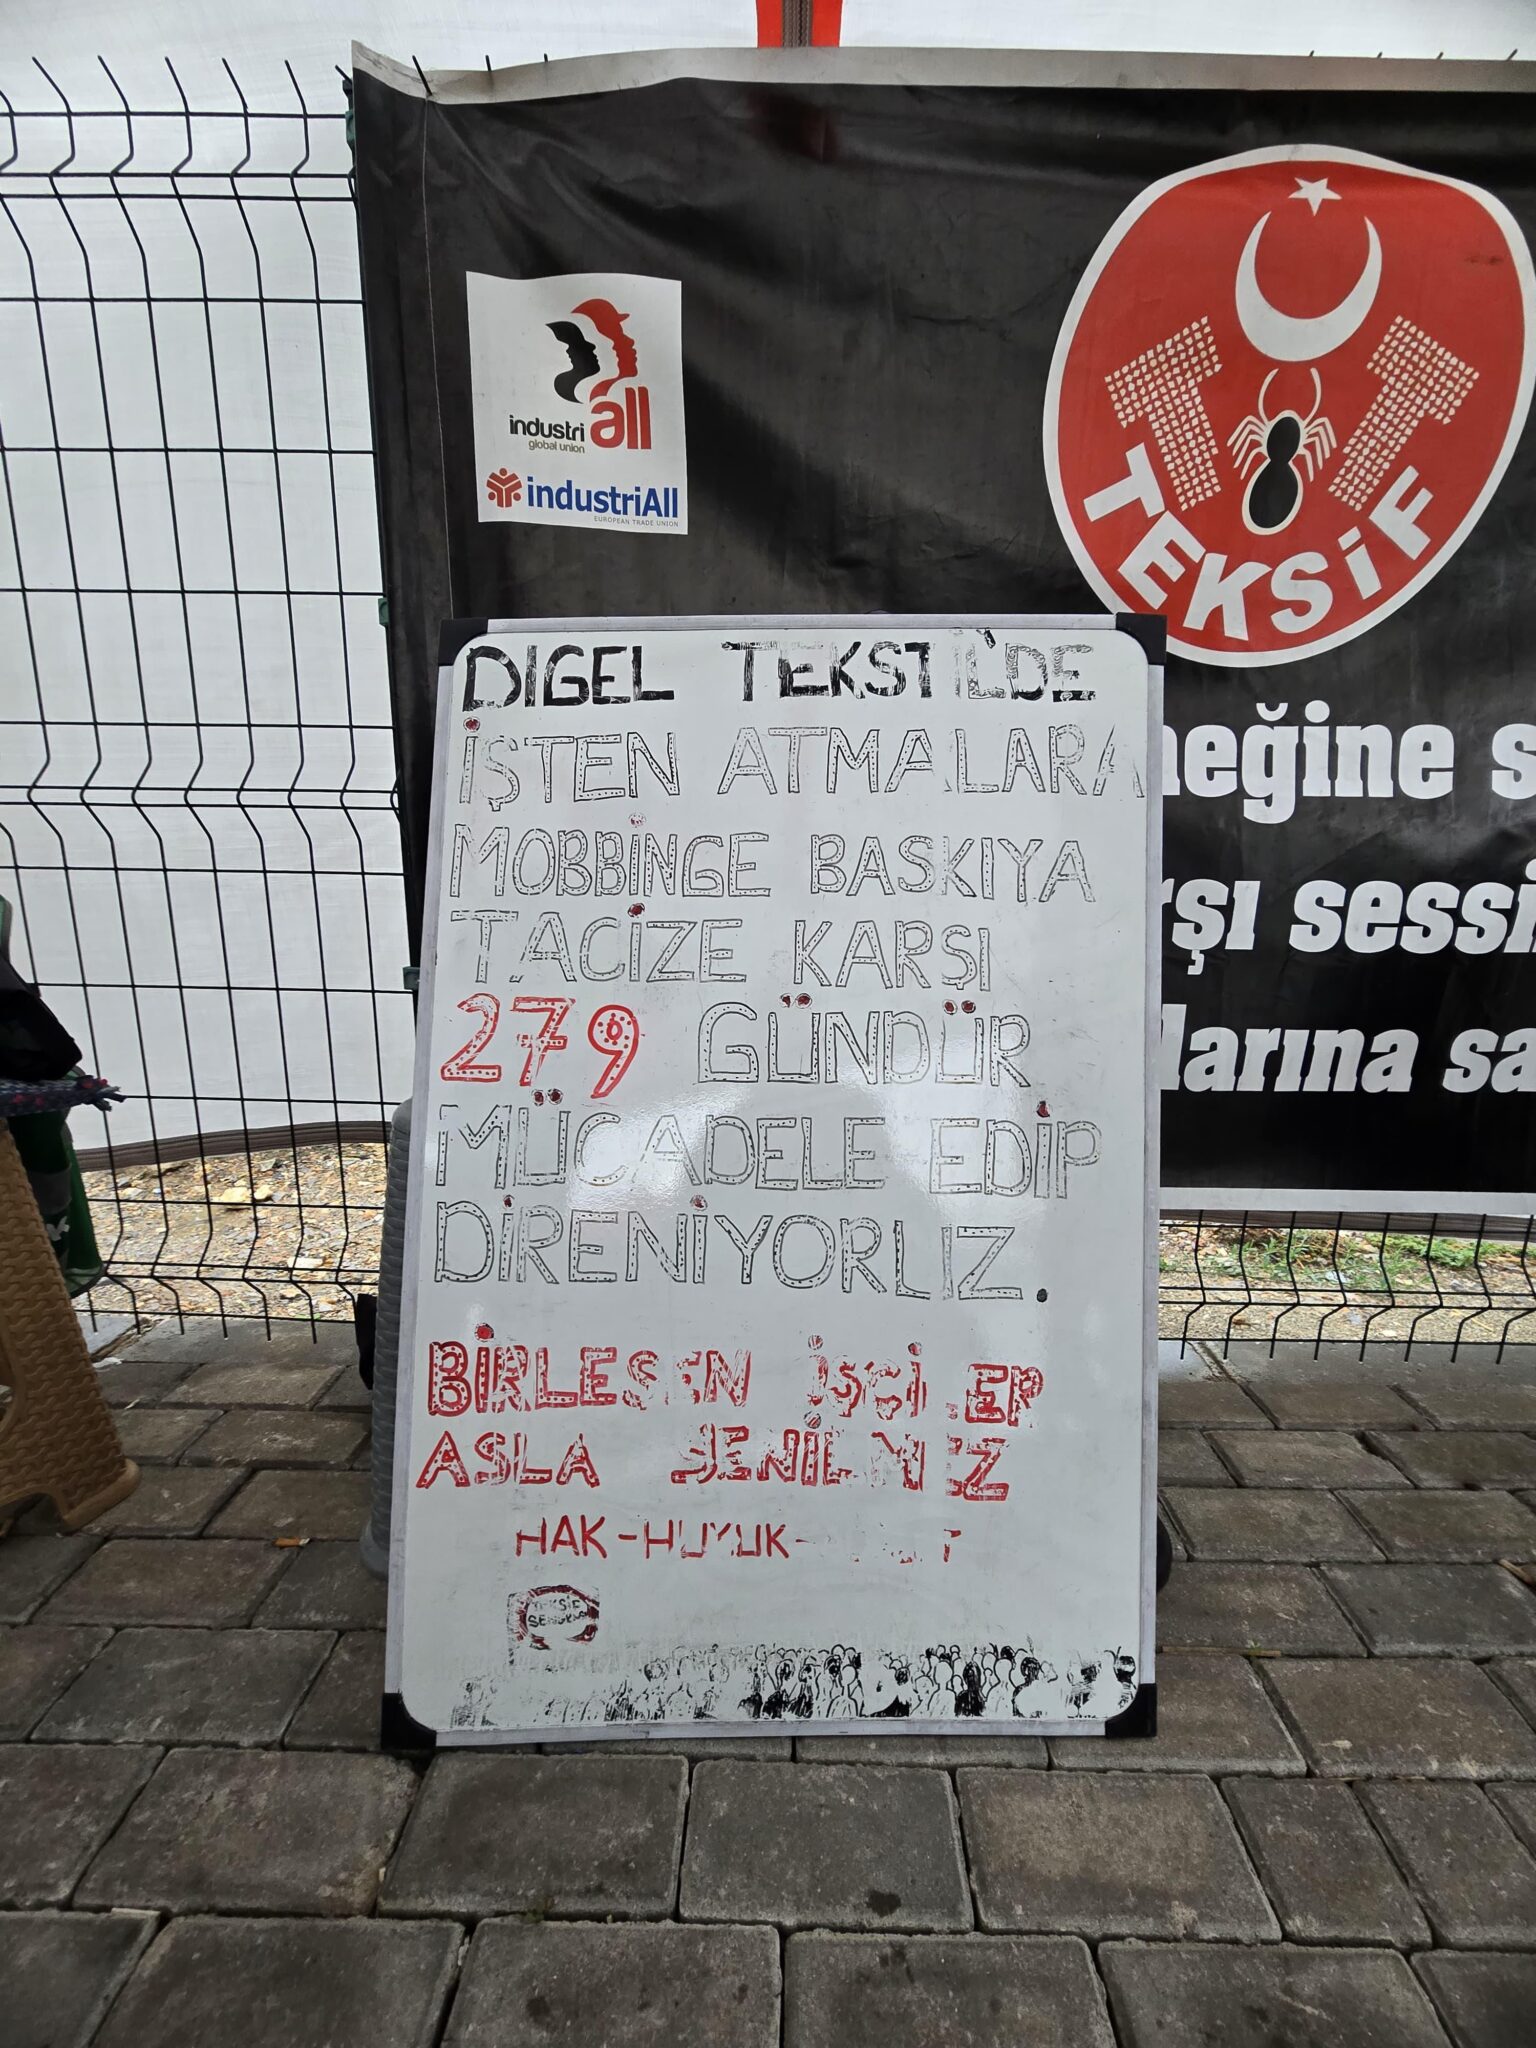 industri all
global union
industriAll
EUROPEAN TRADE UNION
TEKSİF
DIGEL TEKSTİL'DE
İŞTEN ATMALARA
MOBBİNGE BASKIYA
TACİZE KARŞI
279 GÜNDÜR
MÜCADELE EDİP
DİRENİYORUZ.
BİRLEŞEN İŞÇİLER
ASLA YENİLMEZ
HAK-HUKUK-
TEKSİF